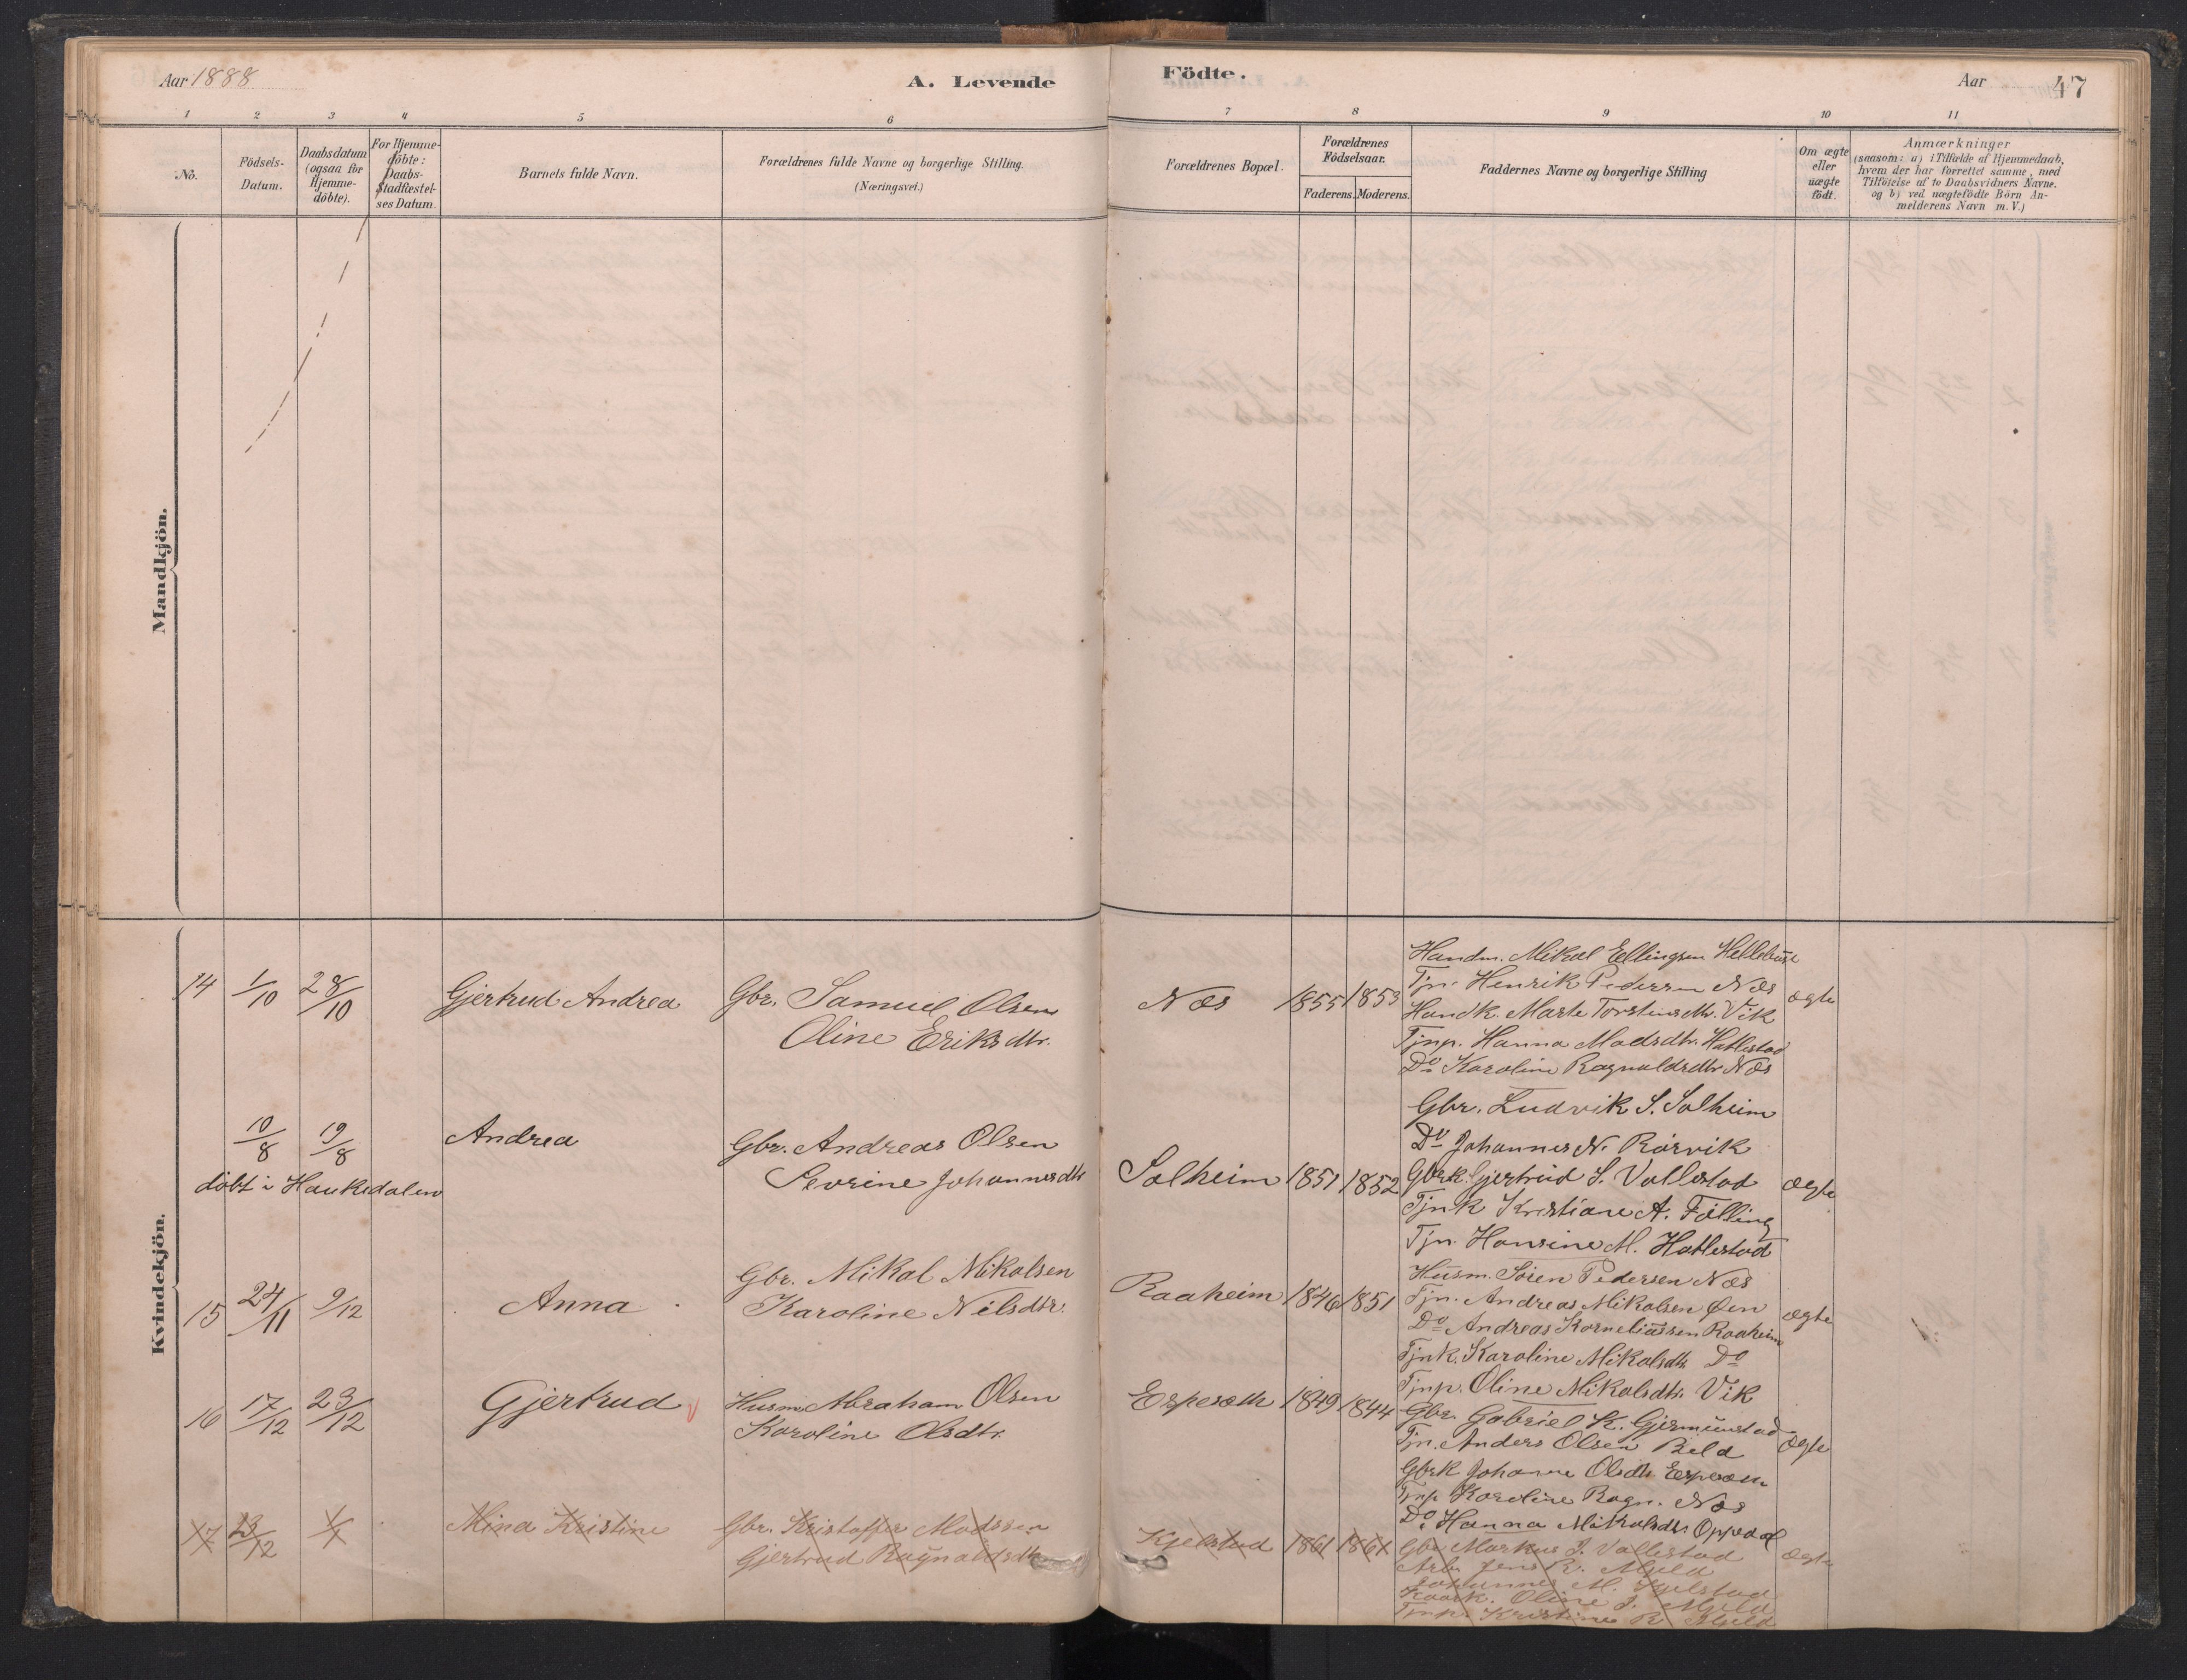 Aar 1888
A. Levende
Födte.
Aar
47
1 2 3 4 5 6 7 8 9 10 11
No.
Födsels-
Datum.
Daabsdatum
(ogsaa for
Hjemme-
döbte).
For Hjemme-
döbte:
Daabs-
Stadfæstel-
ses Datum.
Barnets fulde Navn.
Forældrenes fulde Navne og borgerlige Stilling.
(Næringsvei.)
Forældrenes Bopæl.
Forældrenes
Födselsaar.
Faderens.
Moderens.
Faddernes Navne og borgerlige Stilling
Om ægte
eller
uægte
födt.
Anmærkninger
(saasom: a) i Tilfælde af Hjemmedaab,
hvem der har forrettet samme, med
Tilföielse af to Daabsvidners Navne.
og b) ved uægtefödte Börn An-
melderens Navn m. V.)
Mandkjön.
Kvindekjön.
14 1/10 28/10 Gjertrud Andrea
Gbr. Samuel Olsen
Oline Eriksdtr.
Næs 1855 1853
Handm. Mikal Ellingsen
Tjn. Henrik Pedersen Næs
Handk. Marte Torstensdtr. Vik
Tjnp. Hanna Madsdtr. Hatlestad
Do. Karoline Ragnvaldsdtr Næs
ægte
10/8 19/8 Andrea
döbt i Haukedalen
Gbr. Andreas Olsen
Sevrine Johannesdtr
Solheim 1851 1852
Gbr. Ludvik S. Solheim
Do Johannes N. Rörvik
Gbrk. Gjertrud S. Vallestad
Tjnk Kristiane A. Fölling
Tjn. Hansine M. Hatlestad
ægte
15 24/11 9/12 Anna
Gbr. Mikal Mikalsen
Karoline Nilsdtr.
Raaheim 1846 1851
Husm. Sören Pedersen Næs
Tjn. Andreas Mikalsen Øen
Do Andreas Korneliussen Raaheim
Tjnk. Karoline Mikalsdtr Do
Tjnp. Oline Mikalsdtr. Vik
ægte
16 17/12 23/12 Gjertrud
Husm. Abraham Olsen
Karoline Olsdtr.
Espesæth 1849 1844
Gbr. Gabriel K. Gjermunstad
Tjn. Anders Olsen
Gbrk Johanne Olsdtr
Tjnp Karoline Ragn. Næs
Do. Hanna Mikalsdtr. Oppedal
ægte
17 13/12 1/1 Mina Kristine
Gbr. Kristoffer Madssen
Gjertrud Ragnaldsdtr
Kjelstad 1861 1861
Gbr Markus J. Vallestad
Arb. Jens R. Mjeld
Johannes M. Kjelstad
Oline J. Mjeld
Tjnp. Kristine R. Mjeld
ægte